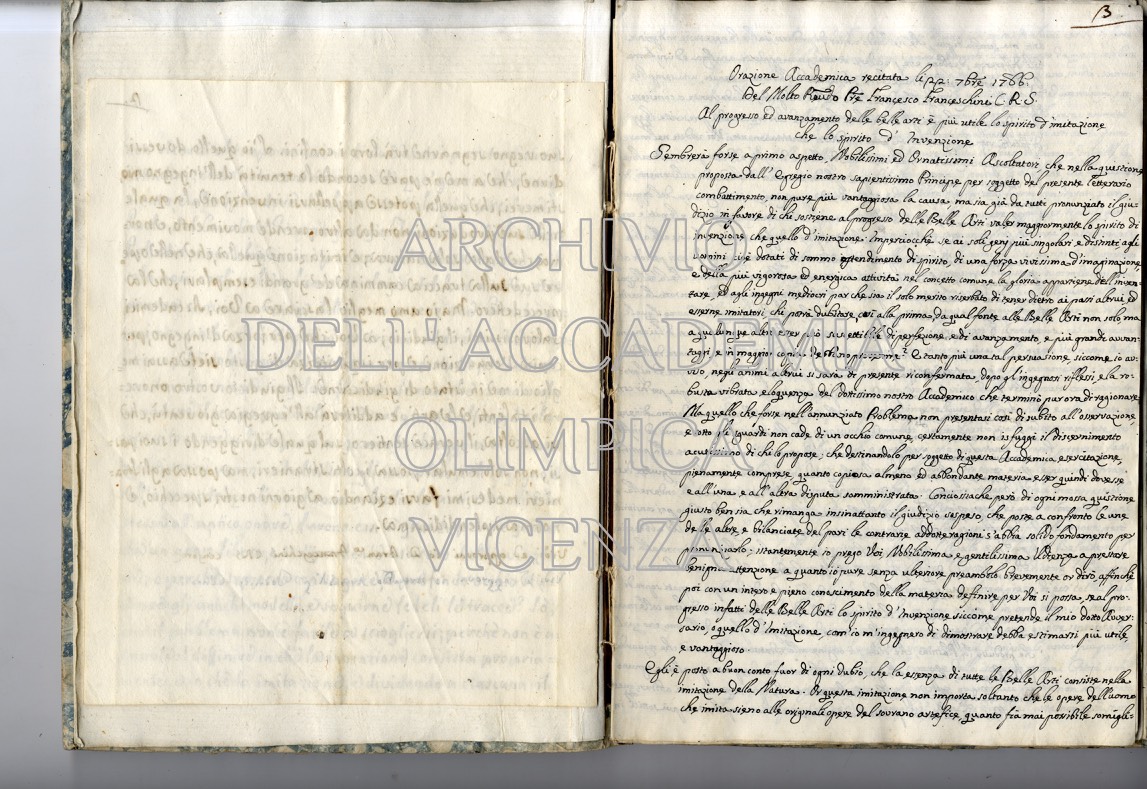 3
Orazione Accademica recitata li 22: 7bre 1766:
Del Molto Revdo Pre Francesco Franceschini C. R. S.
Al progresso ed avanzamento delle belle arti è più utile lo spirito d'imitazione
che lo spirito d'Invenzione
Sembrerà forse a primo aspetto, Nobilissimi ed Ornatissimi Ascoltatori, che nella quistione
proposta dall'Egregio nostro sapientissimo Principe per soggetto del presente letterario
combattimento, non pure più vantagiosa la causa, ma sia già da tutti pronunziato il giu-
dizio in favore di chi sostiene al progresso delle Belle Arti valer maggiormente lo spirito di
invenzione che quello d'imitazione. Imperciocchè se ai soli genj più singolari e distinti, agli
uomini di dotati di sommo intendimento di spirito, di una forza vivissima d'imaginazione
e della più vigorosa ed energica attività nel concetto comune la gloria appartiene dell'inven-
tare, ed agli ingegni mediocri par che sia il solo merito riserbato di tener dietro ai passi altrui, ed
esserne imitatori, che potrà dubitare, così alla prima, da qual fonte alle Belle Arti non solo ma
a qualunque altra esser può suscettibile di perfezione, e di avanzamento e più grandi avvan-
taggi, e in maggior copia debbano Et tanto più una tal persuasione siccome io av-
viso, negli animi altrui si sarà di presente riconfermata, dopo gl'ingegnosi riflessi, e la ro-
busta vibrata eloquenza del dottissimo nostro Accademico che terminò pur ora di raggionare
Ma quello che forse nell'annunziato Problema non presentasi così di subito all'osservazione,
e sotto gli sguardi non cade di un occhio comune, certamente non isfuggì il discernimento
acutissimo di chi lo propose; che destinandolo per oggetto di questa Accademica esercitazione,
pienamente comprese, quanto copiosa almeno ed abbondante materia esser quindi dovesse
e all'una e all'altra disputa somministrata. Conciossiachè però di ogni mossa quistione
giusto ben sia che rimanga insinattanto il giudizio sospeso, che poste a confronto le une
delle altre, e bilanciate del pari le contrarie addotte ragioni s'abbia solido fondamento per
pronunziarlo; istantemente io prego Voi Nobilissima, e gentilissima Udienza a prestare
benigna attenzione a quanto io pure senza ulteriore preambolo brevemente or dirò, affinchè
poi con un intero e pieno conoscimento della materia definire per Voi si possa, se al pro-
gresso infatti delle Belle Arti lo spirito d'Invenzione siccome pretende il mio dotto Avver-
sario, o quello d'Imitazione, com'io m'ingegnerò di dimostrare debba estimarsi più utile,
e vantaggioso.
Egli è posto a buon conto fuor di ogni dubio, che la essenza di tutte le Belle Arti consiste nella
imitazione della Natura. Or questa imitazione non importa soltanto che le opere dell'uomo
che imita sieno alle originali opere del sovrano artefice, quanto fia mai possibile somigli-
ARCHIVIO
DELL'ACCADEMIA
OLIMPICA
VICENZA